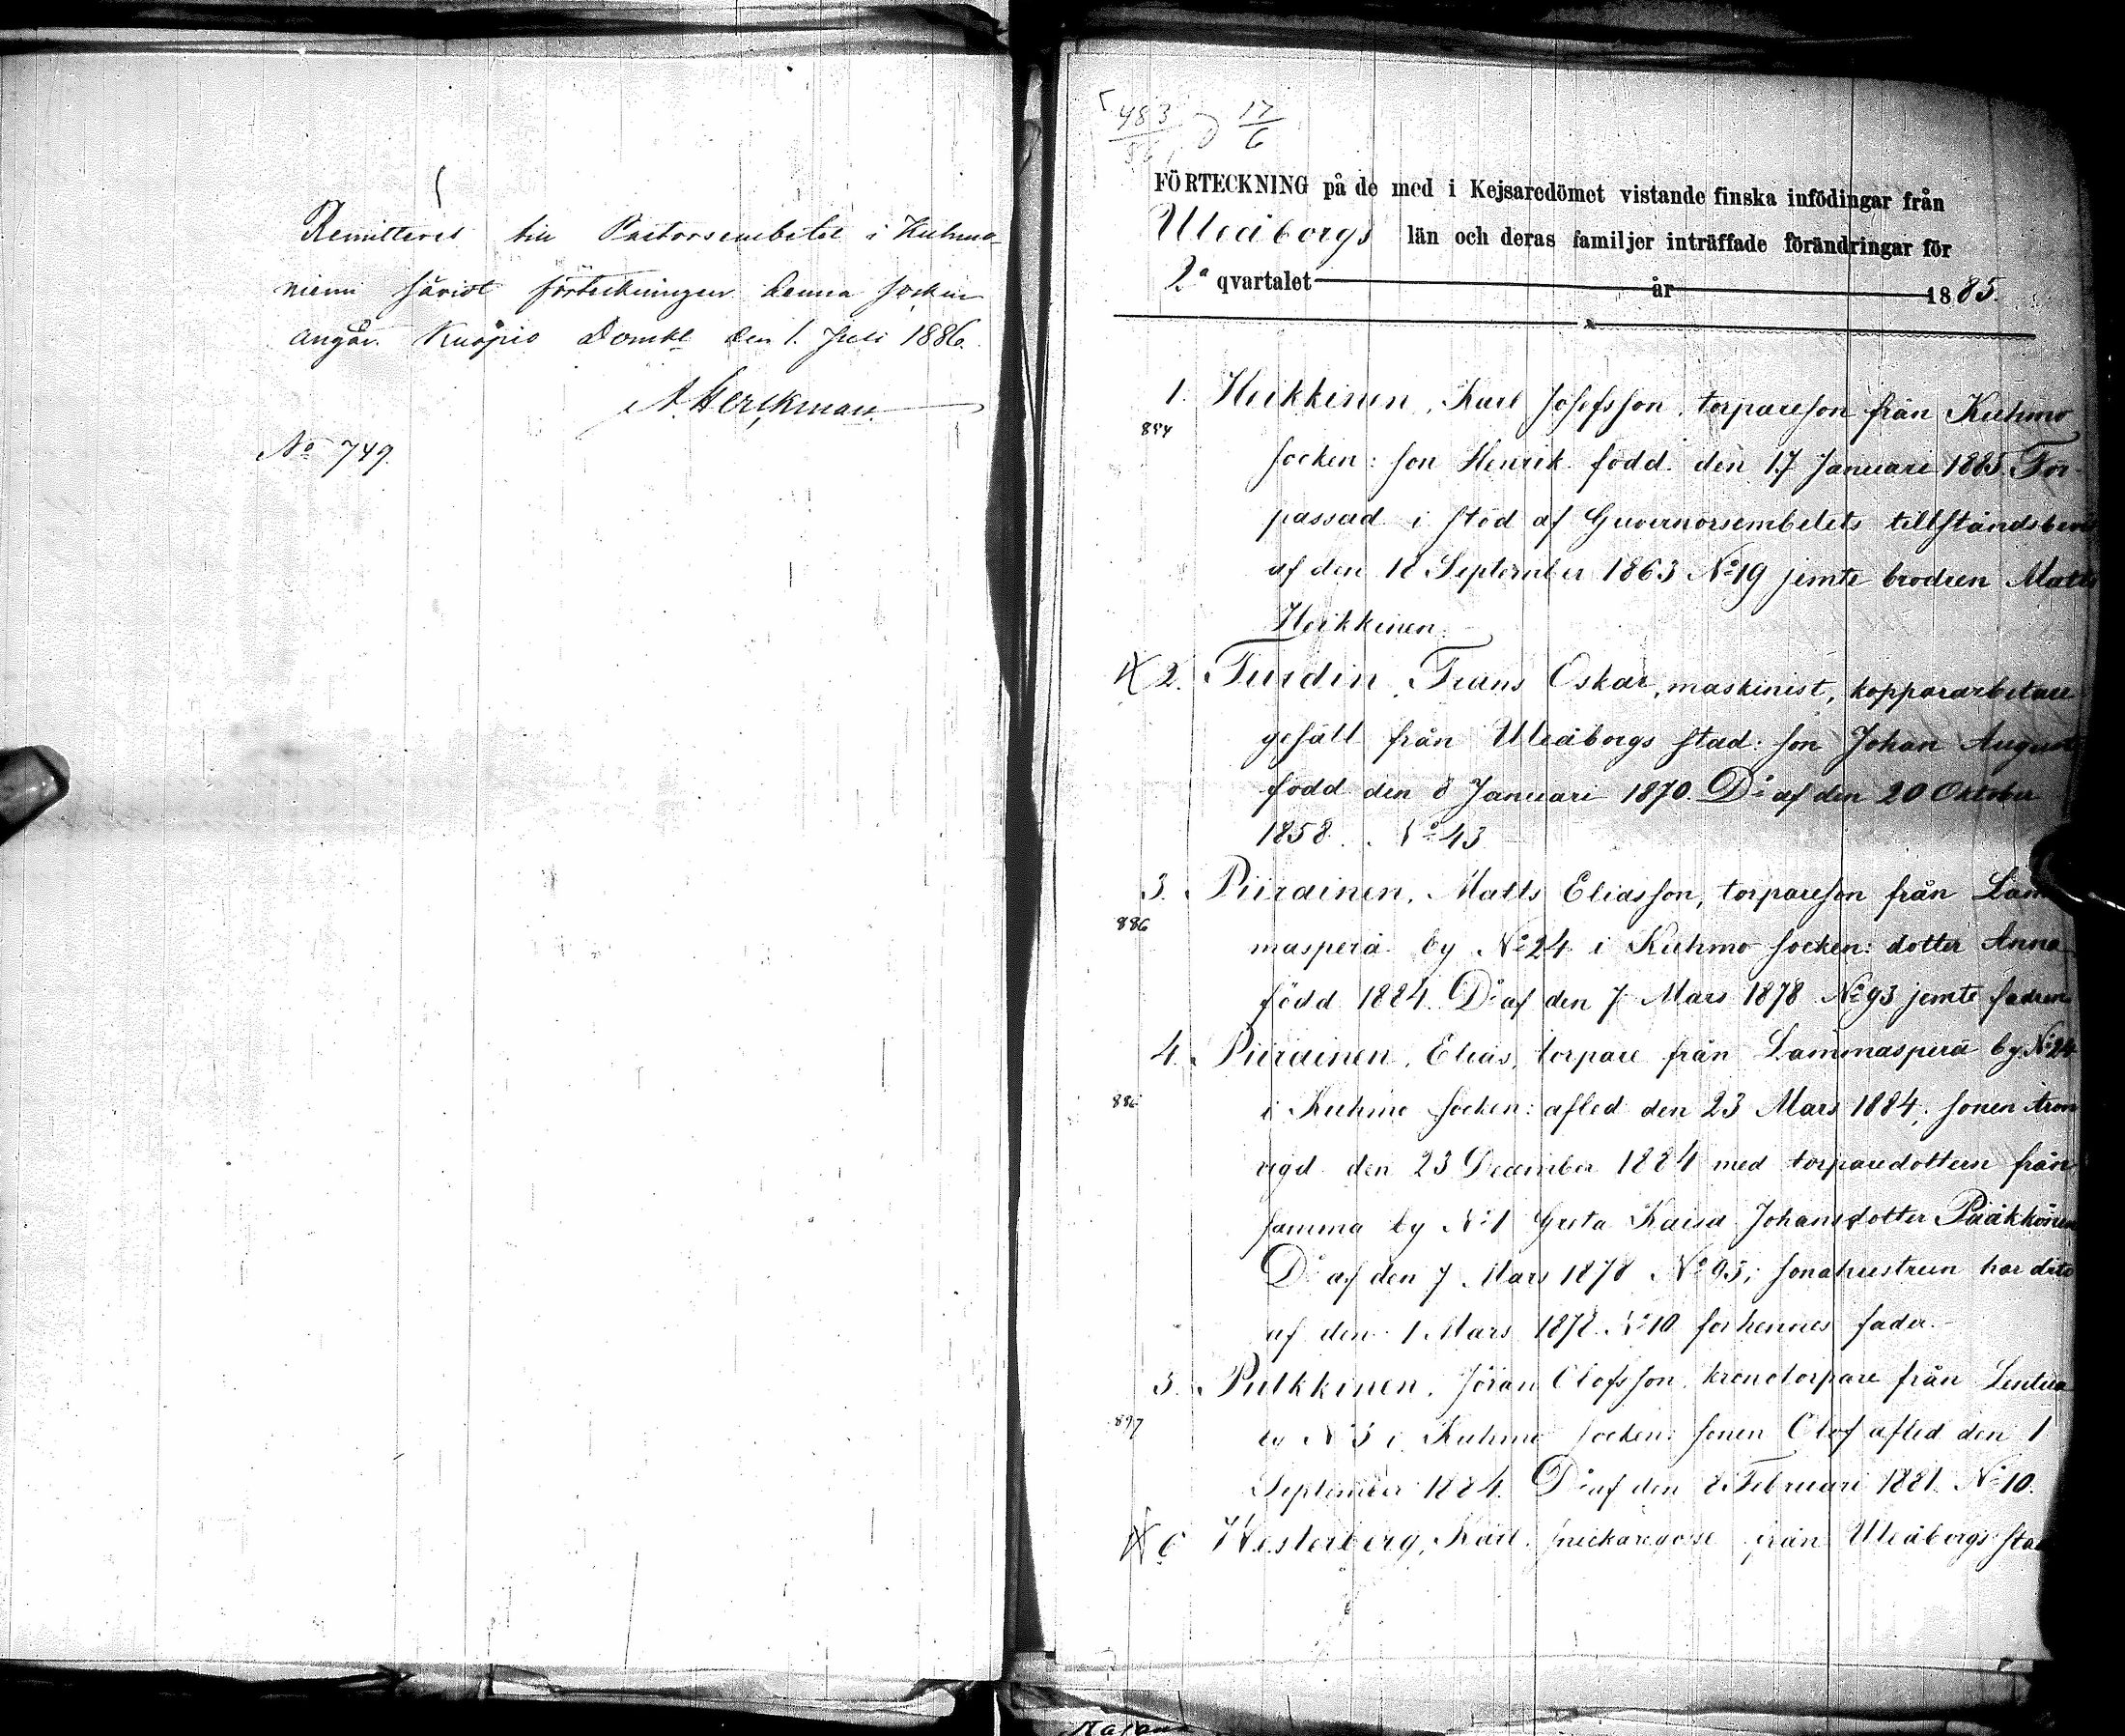 Remitteras till Pastorsembetet i Kuhmo-
niemi såvidt förteckningen denna socken
angår. Kuopio Domkl den 1. Juli 1886.
No 749.
483 17
86 6
FÖRTECKNING på de med i Kejsaredömet vistande finska infödingar från
Uleåborgs län och deras familjer inträffade förändringar för
2a qvartalet år 1885.
1. Heikkinen, Karl Josefsson, torpareson från Kuhmo
884
socken: son Henrik född den 17 Januari 1885. För-
passad i stöd af Guvernörsembetets tillståndsbevis
af den 18 September 1863 No 19 jemte brodren Matts
Heikkinen.
2. Turdin, Frans Oskar, maskinist, koppararbetare
gesäll från Uleåborgs stad: son Johan August
född den 8 Januari 1870. Do af den 20 Oktober
1858. No 43
3. Piirainen, Matts Eliasson, torpareson från Lam-
886
masperä by No 24 i Kuhmo socken: dotter Anna
född 1884. Do af den 7 Mars 1878 No 93 jemte fadren
4. Piirainen, Elias, torpare från Lammasperä by No 24
886
i Kuhmo socken: afled den 23 Mars 1884; sonen Aron
vigd den 23 December 1884 med torparedottern från
samma by No 1 Greta Kaisa Johansdotter Pääkkönen
Do af den 7 Mars 1878 No 93; sonahustrun har dito
af den 1 Mars 1878 No 10 för hennes fader.
5. Pulkkinen, Jöran Olofsson, kronotorpare från Lentiira
897
by No 3 i Kuhmo socken: sonen Olof afled den 1
September 1884. Do af den 8 Februari 1881 No 10.
6 Westerberg, Karl, snickaregosse från Uleåborgs stad